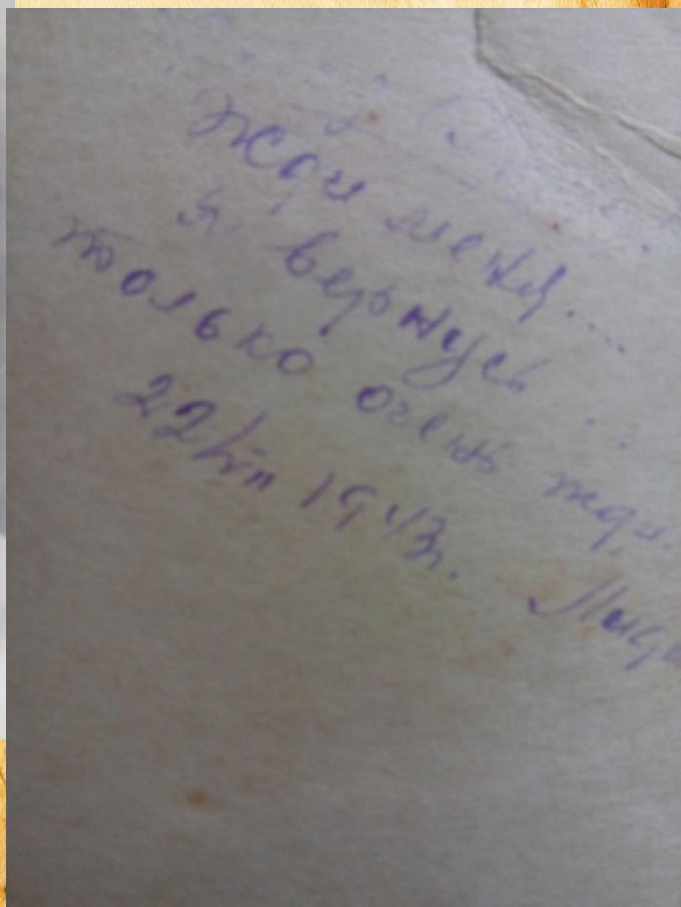 Жди меня....
я вернусь...
только очень жди.
22/ 1943г.
Лида